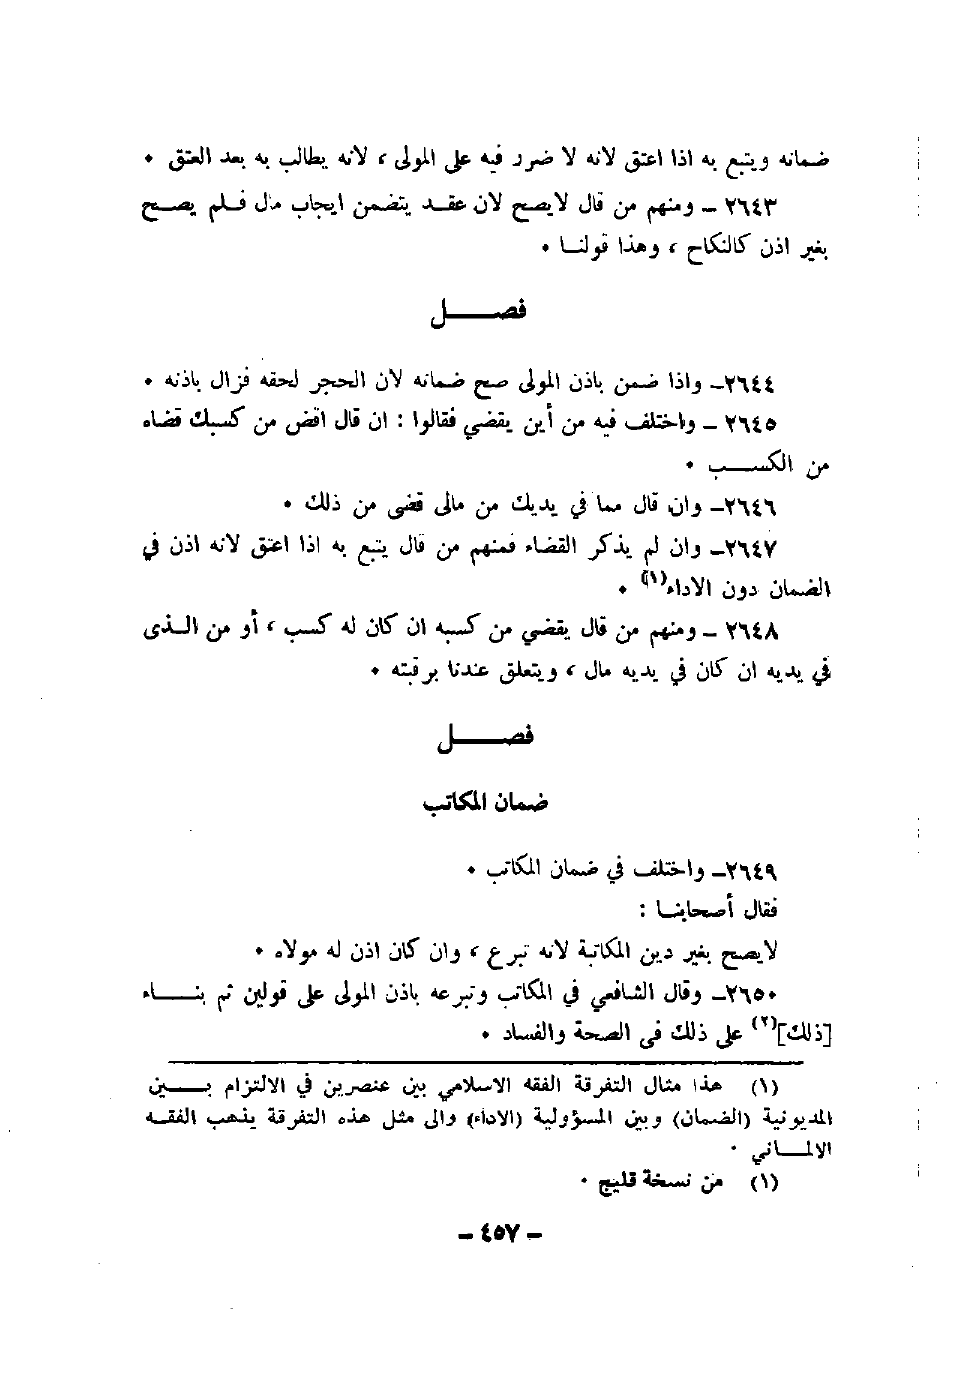 ضمانه ويتبع به اذا اعتق لانه لا ضرر فيه على المولى ، لانه يطالب به بعد العتق .
٢٦٤٣ ــ ومنهم من قال لايصح لان عقد يتضمن ايجاب مال فلم يصح
بغير اذن كالنكاح ، وهذا قولنا .
فصل
٢٦٤٤ــ واذا ضمن باذن المولى صح ضمانه لان الحجر لحقه فزال باذنه .
٢٦٤٥ ــ واختلف فيه من أين يقضي فقالوا : ان قال اقض من كسبك قضاه
من الكسب .
٢٦٤٦ــ وان قال مما في يديك من مالى قضى من ذلك .
٢٦٤٧ــ وان لم يذكر القضاء فمنهم من قال يتبع به اذا اعتق لانه اذن في
الضمان دون الاداء(١) .
٢٦٤٨ ــ ومنهم من قال يقضي من كسبه ان كان له كسب ، أو من الذى
في يديه ان كان في يديه مال ، ويتعلق عندنا برقبته .
فصل
ضمان المكاتب
٢٦٤٩ــ واختلف في ضمان المكاتب .
فقال أصحابنا :
لايصح بغير دين المكاتبة لانه تبرع ، وان كان اذن له مولاه .
٢٦٥٠ــ وقال الشافعي في المكاتب وتبرعه باذن المولى على قولين ثم بناء
[ذلك](٢) على ذلك فى الصحة والفساد .
(١) هذا مثال التفرقة الفقه الاسلامي بين عنصرين في الالتزام بين
المديونية (الضمان) وبين المسؤولية (الاداء) والى مثل هذه التفرقة يذهب الفقه
الالماني .
(١) من نسخة قليج .
ــ ٤٥٧ ــ